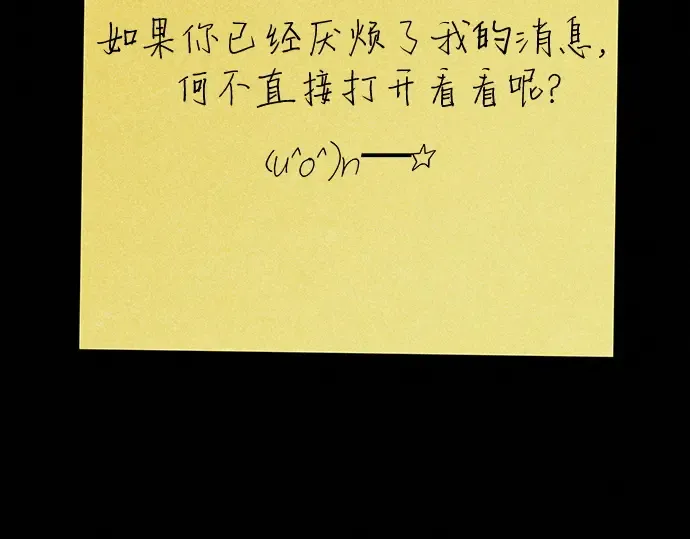 如果你已经厌烦了我的消息,
何不直接打开看看呢?
(u^o^)n━━☆